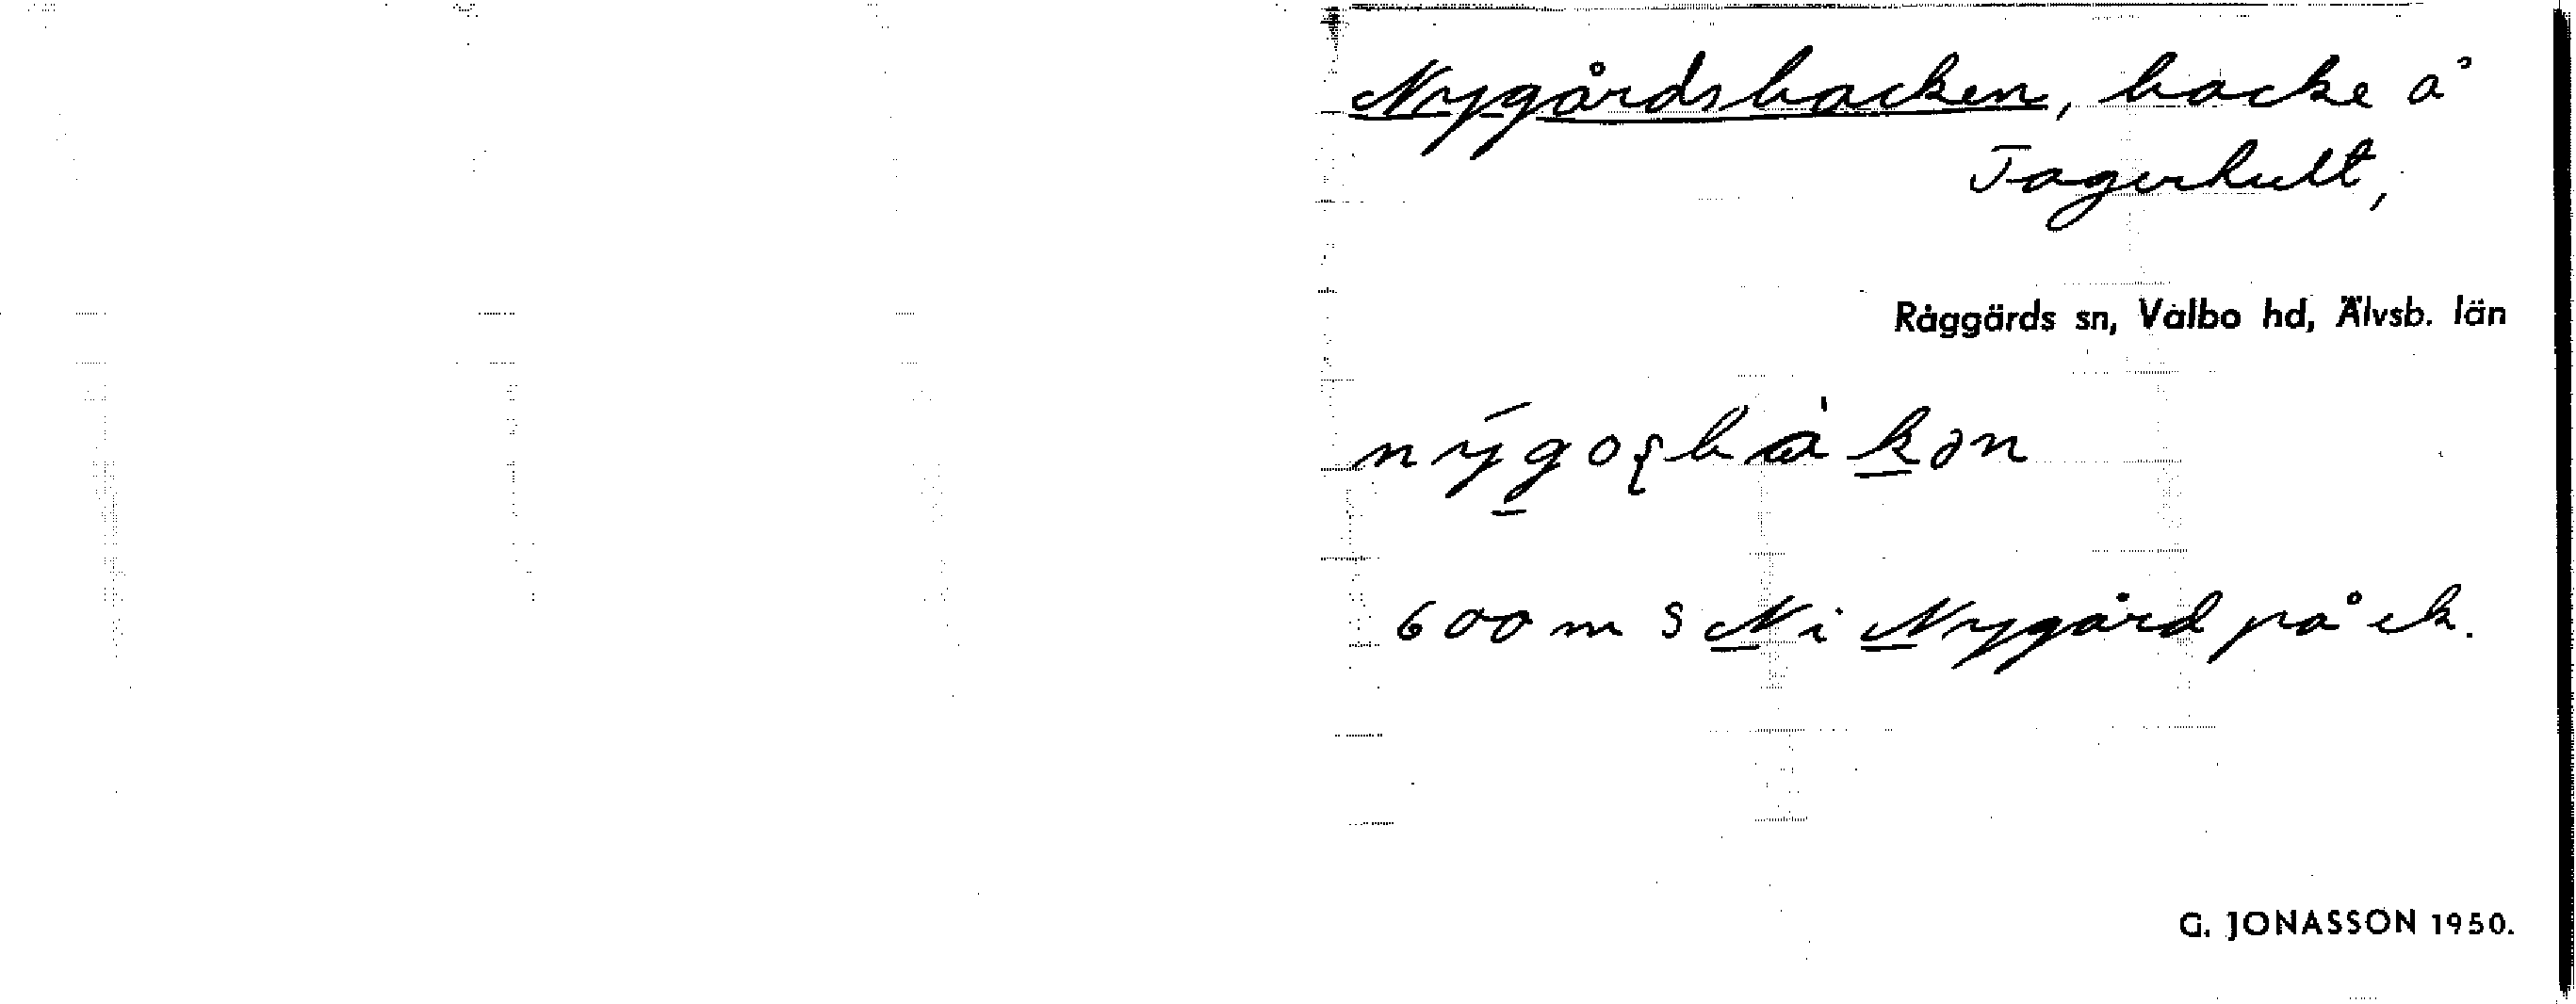 Nygårdsbacken, backe å
Tagerhult,
Råggärds sn, Valbo hd, Älvsb. län
600 m S N i Nygård på ek.
G. JONASSON 1950.